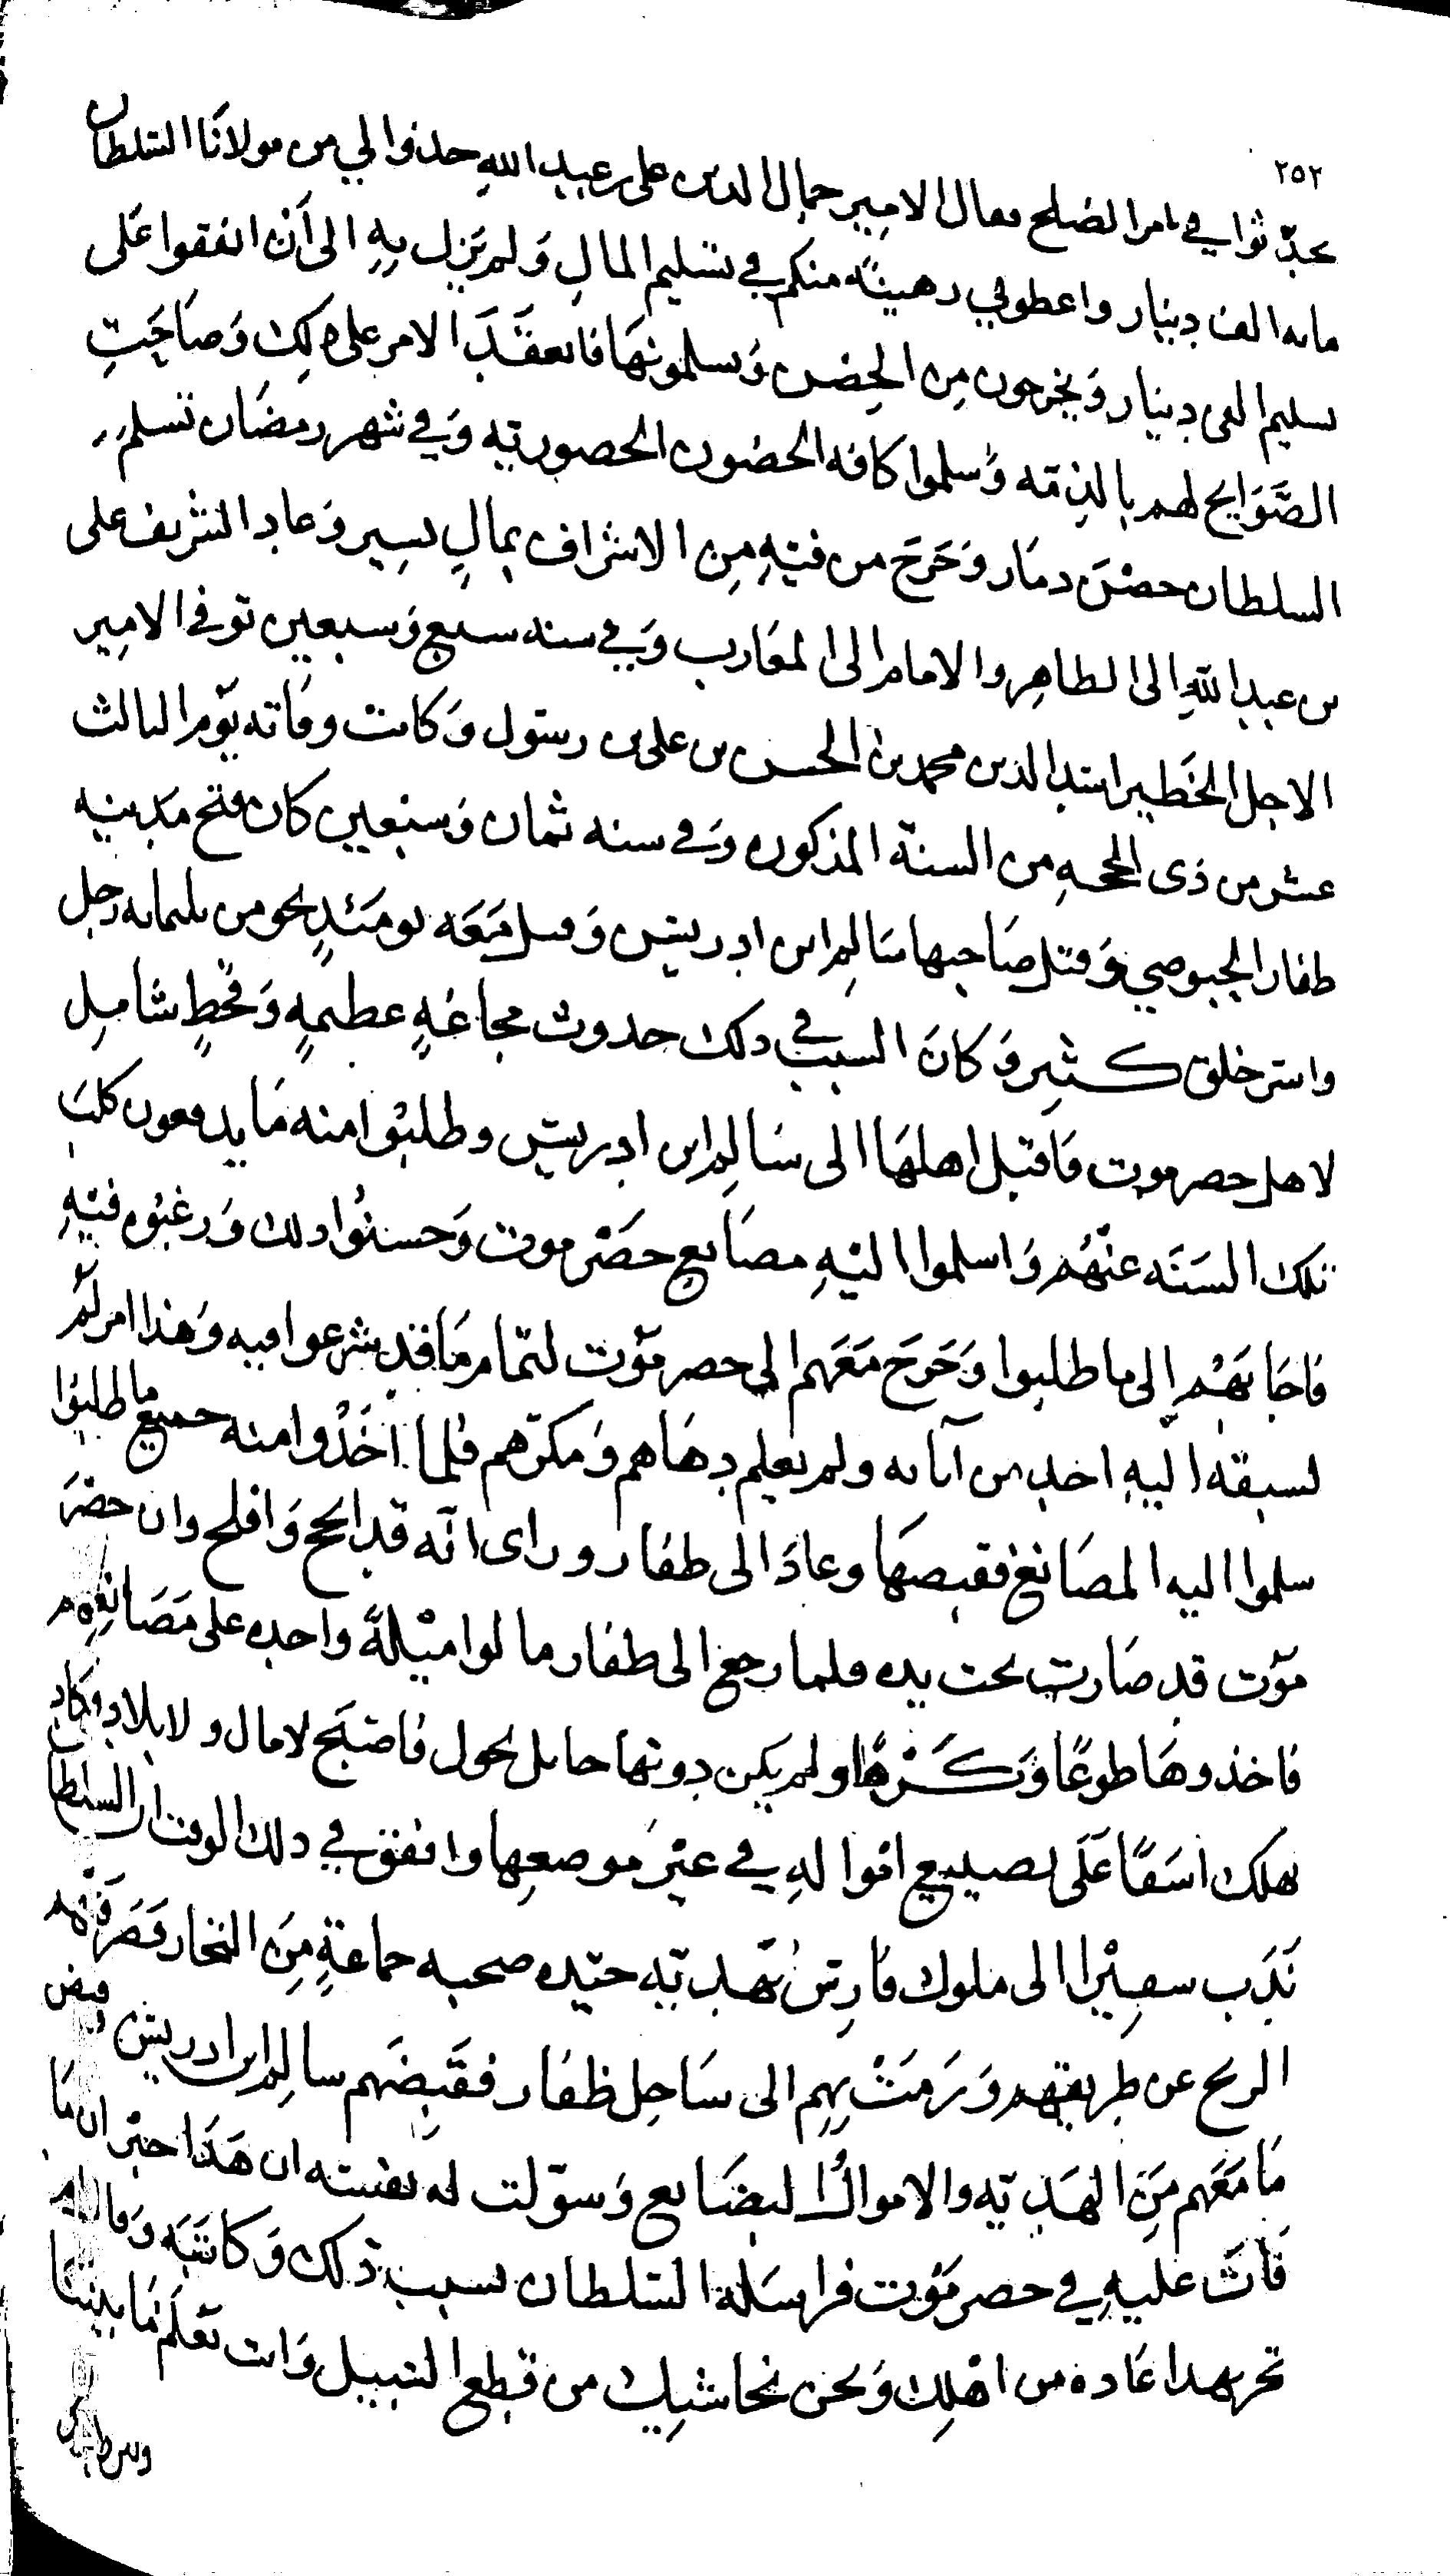 ٢٥٢
تحدّثوا في امر الصلح فقال الامير جمال الدين على بن عبد الله خذوا لي من مولانا السلطان
مائه الف دينار واعطوني رهينه منكم في تسليم المال ولم يزل به الى أن اتفقوا على
تسليم الفى دينار ويخرجون من الحصن ويسلمونها فانعقد الامر على ذلك وصاحت
الصوايح لهم بالذمه وسلموا كافه الحصون الحضوريه وفي شهر رمضان تسلم
السلطان حصن دمار وخرج من فيه من الاشراف بمال يسير وعاد الشريف على
بن عبد الله الى الظاهر والامام الى المغارب وفي سنه سبع وسبعين توفي الامير
الاجل الخطير اسد الدين محمد بن الحسن بن على بن رسول وكانت وفاته يوم الثالث
عشر من ذى الحجه من السنة المذكوره وفي سنه ثمان وسبعين كان فتح مدينه
ظفار الحبوضي وقتل صاحبها سالم ابن ادريس وقتل معه يومئذٍ نحو من ثلثمائه رجل
واسر خلق كثير وكان السبب في ذلك حدوث مجاعةٍ عظيمةٍ وقحطٍ شاملٍ
لاهل حضرموت فاقبل اهلها الى سالم ابن ادريس وطلبوا منه ما يدفعون كلب
تلك السنه عنهم واسلموا اليه مصانع حضرموت وحسنوا ذلك ورغبوه فيه
فاجابهم إلى ما طلبوا وخرج معهم الى حضرموت لتمام ما قد شرعوا فيه وهذا امر لم
يسبقه اليه احد من آبائه ولم يعلم دهاهم ومكرهم فلما اخذوا منه جميع ما طلبوا
سلموا اليه المصانع فقبضها وعاد الى ظفار وراى انه قد انجح وافلح وان حضر
موت قد صارت تحت يده فلما رجع الى ظفار مالوا ميلةً واحده على مصانعهم
فاخذوها طوعًا وكرهًا ولم يكن دونها حائل يحول فاصبح لا مال ولا بلاد وكاد
يهلك اسفًا على تضييع امواله في غير موضعها واتفق في ذلك الوقت ان السلطان
ندب سفيرا الى ملوك فارس بهديّه جيّده صحبه جماعةٍ من التجار فصرفتهم
الريح عن طريقهم ورمت بهم الى ساحل ظفار فقبضهم سالم ابن ادريس وقبض
ما معهم من الهديّه والاموال البضايع وسوّلت له نفسه ان هذا جبران ما
فات عليه في حضرموت فراسله السلطان بسبب ذلك وكاتبه وقال لم
تجر بهذا عاده من اهلك ونحن نحاشيك من قطع السبيل وانت تعلم ما بيننا